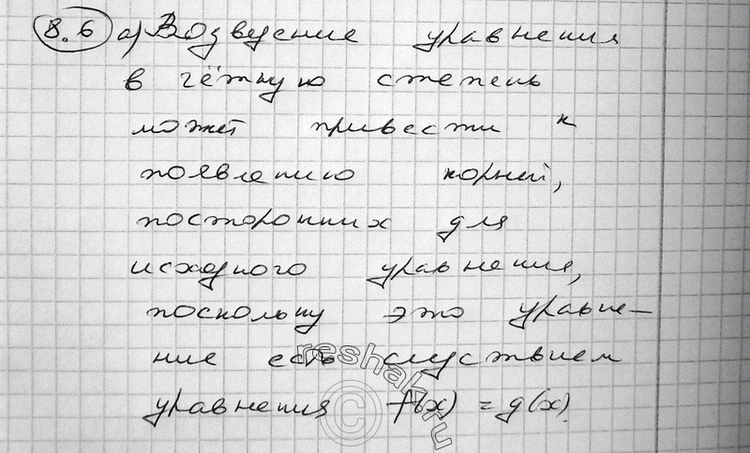 8.6 а) Возведение уравнения
в чётную степень
может привести к
появлению корней,
посторонних для
исходного уравнения,
поскольку это уравне-
ние есть следствием
уравнения f(x) = g(x)
reshak.ru
©